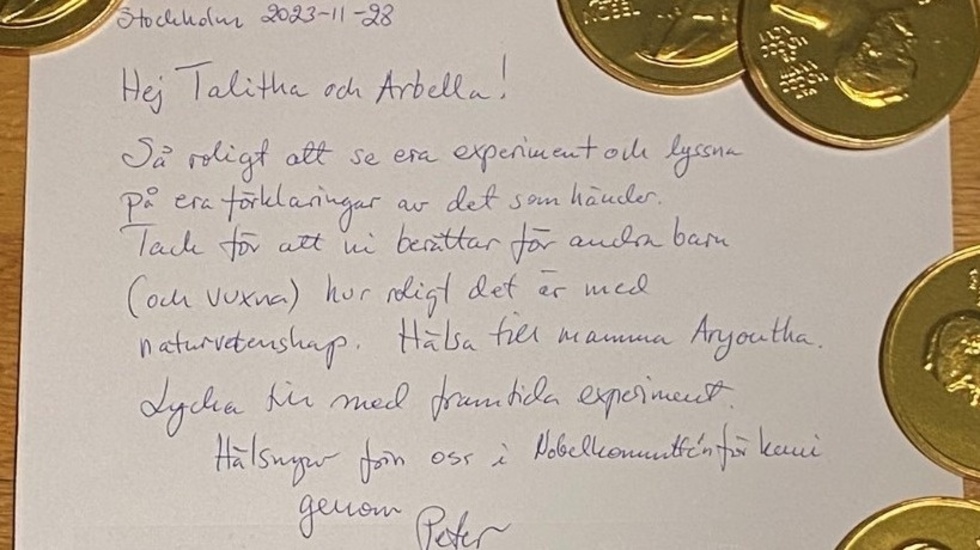 Stockholm 2023-11-28
Hej Talitha och Arbella!
Så roligt att se era experiment och lyssna
på era förklaringar av det som händer.
Tack för att ni berättar för andra barn
(och vuxna) hur roligt det är med
naturvetenskap. Hälsa till mamma Aryoutha.
Lycka till med framtida experiment.
Hälsningar från oss i Nobelkommittén för kemi
genom Peter
NOBEL